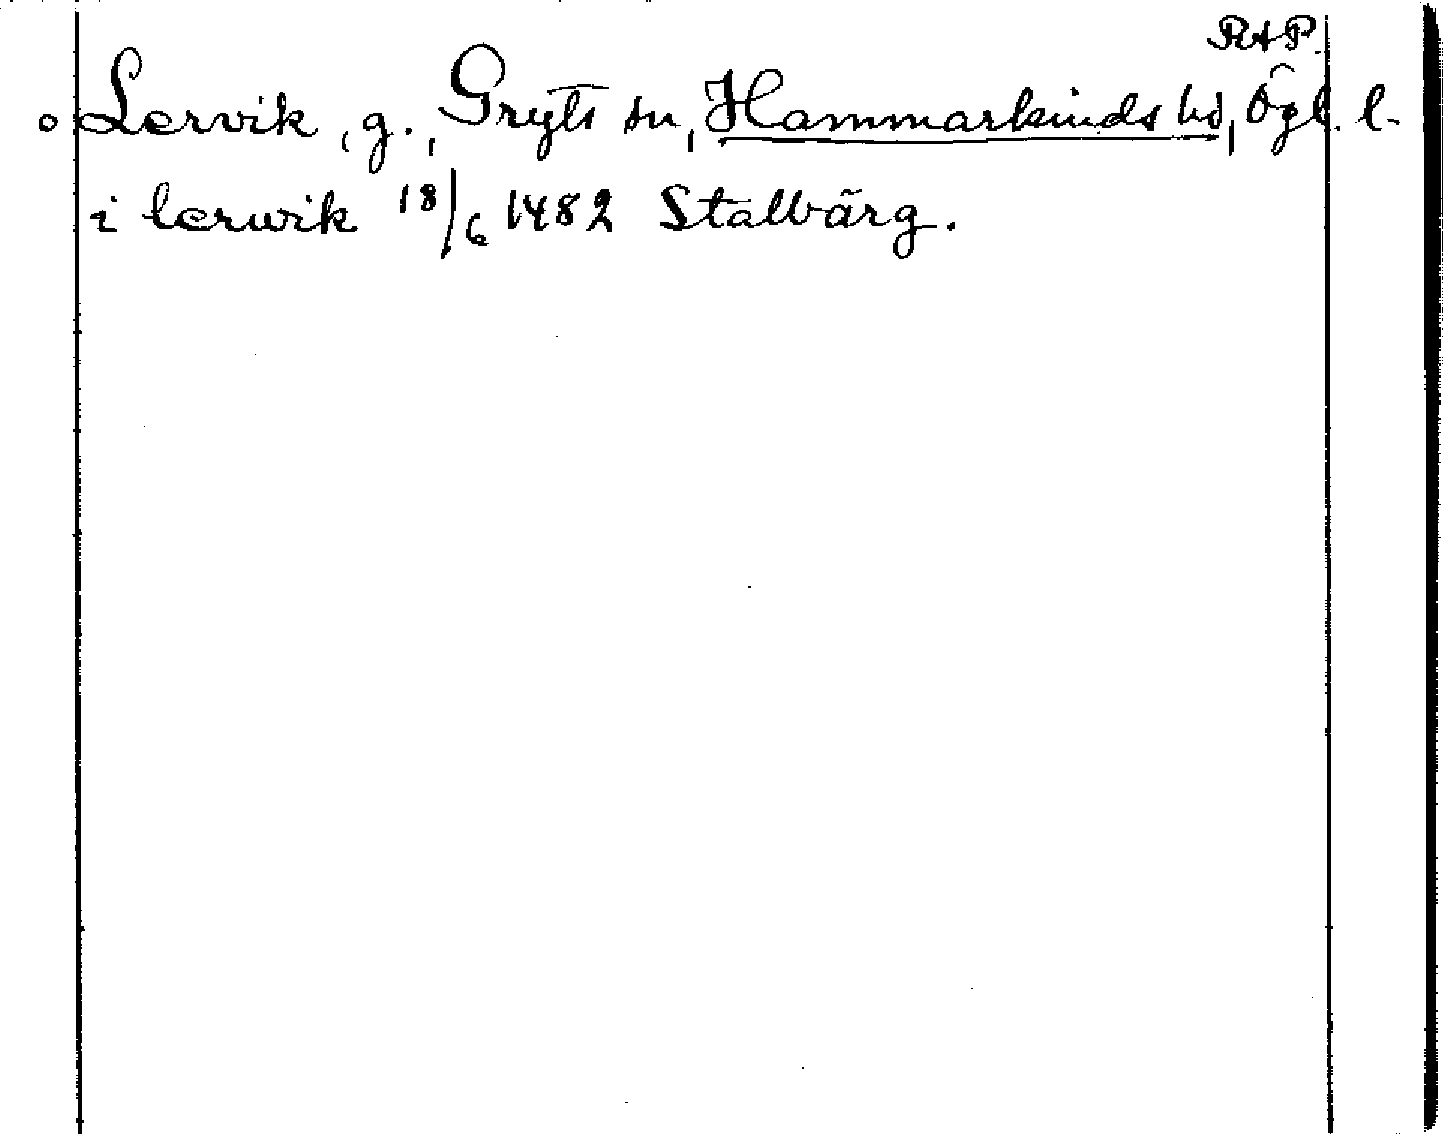 RAP.
o Lervik, g., Gryts sn, Hammarkinds hd, Ögl. l.
i lerwik 18/6 1482 Stålbärg.